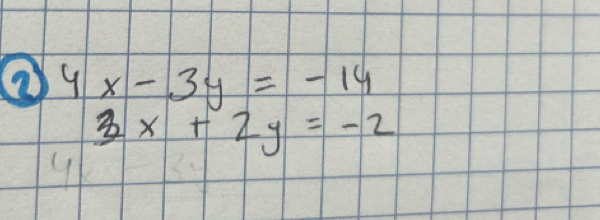 ② 4x - 3y = -14
3x + 2y = -2